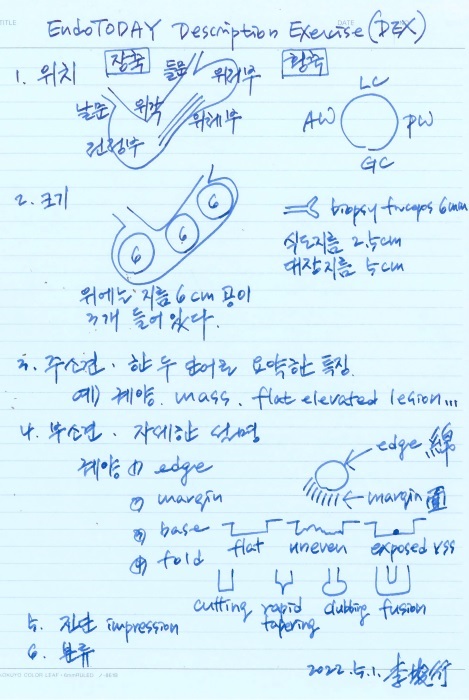 TITLE
DATE
EndoTODAY Description Exercise (DEX)
1. 위치
장축
들문
위저부
횡축
날문
위각
위체부
전정부
LC
AW
PW
GC
2. 크기
6
6
6
biopsy forceps 6mm
식도지름 2.5cm
대장지름 5cm
위에는 지름 6cm 공이
3개 들어있다.
3. 주소견. 한 두 단어로 요약한 특징.
예) 궤양. mass. flat elevated lesion...
4. 부소견. 자세한 설명
궤양 ① edge
② margin
③ base
④ fold
edge
margin
flat
uneven
exposed vss
cutting
rapid tapering
clubbing
fusion
5. 진단 impression
6. 분류
2022.5.1.